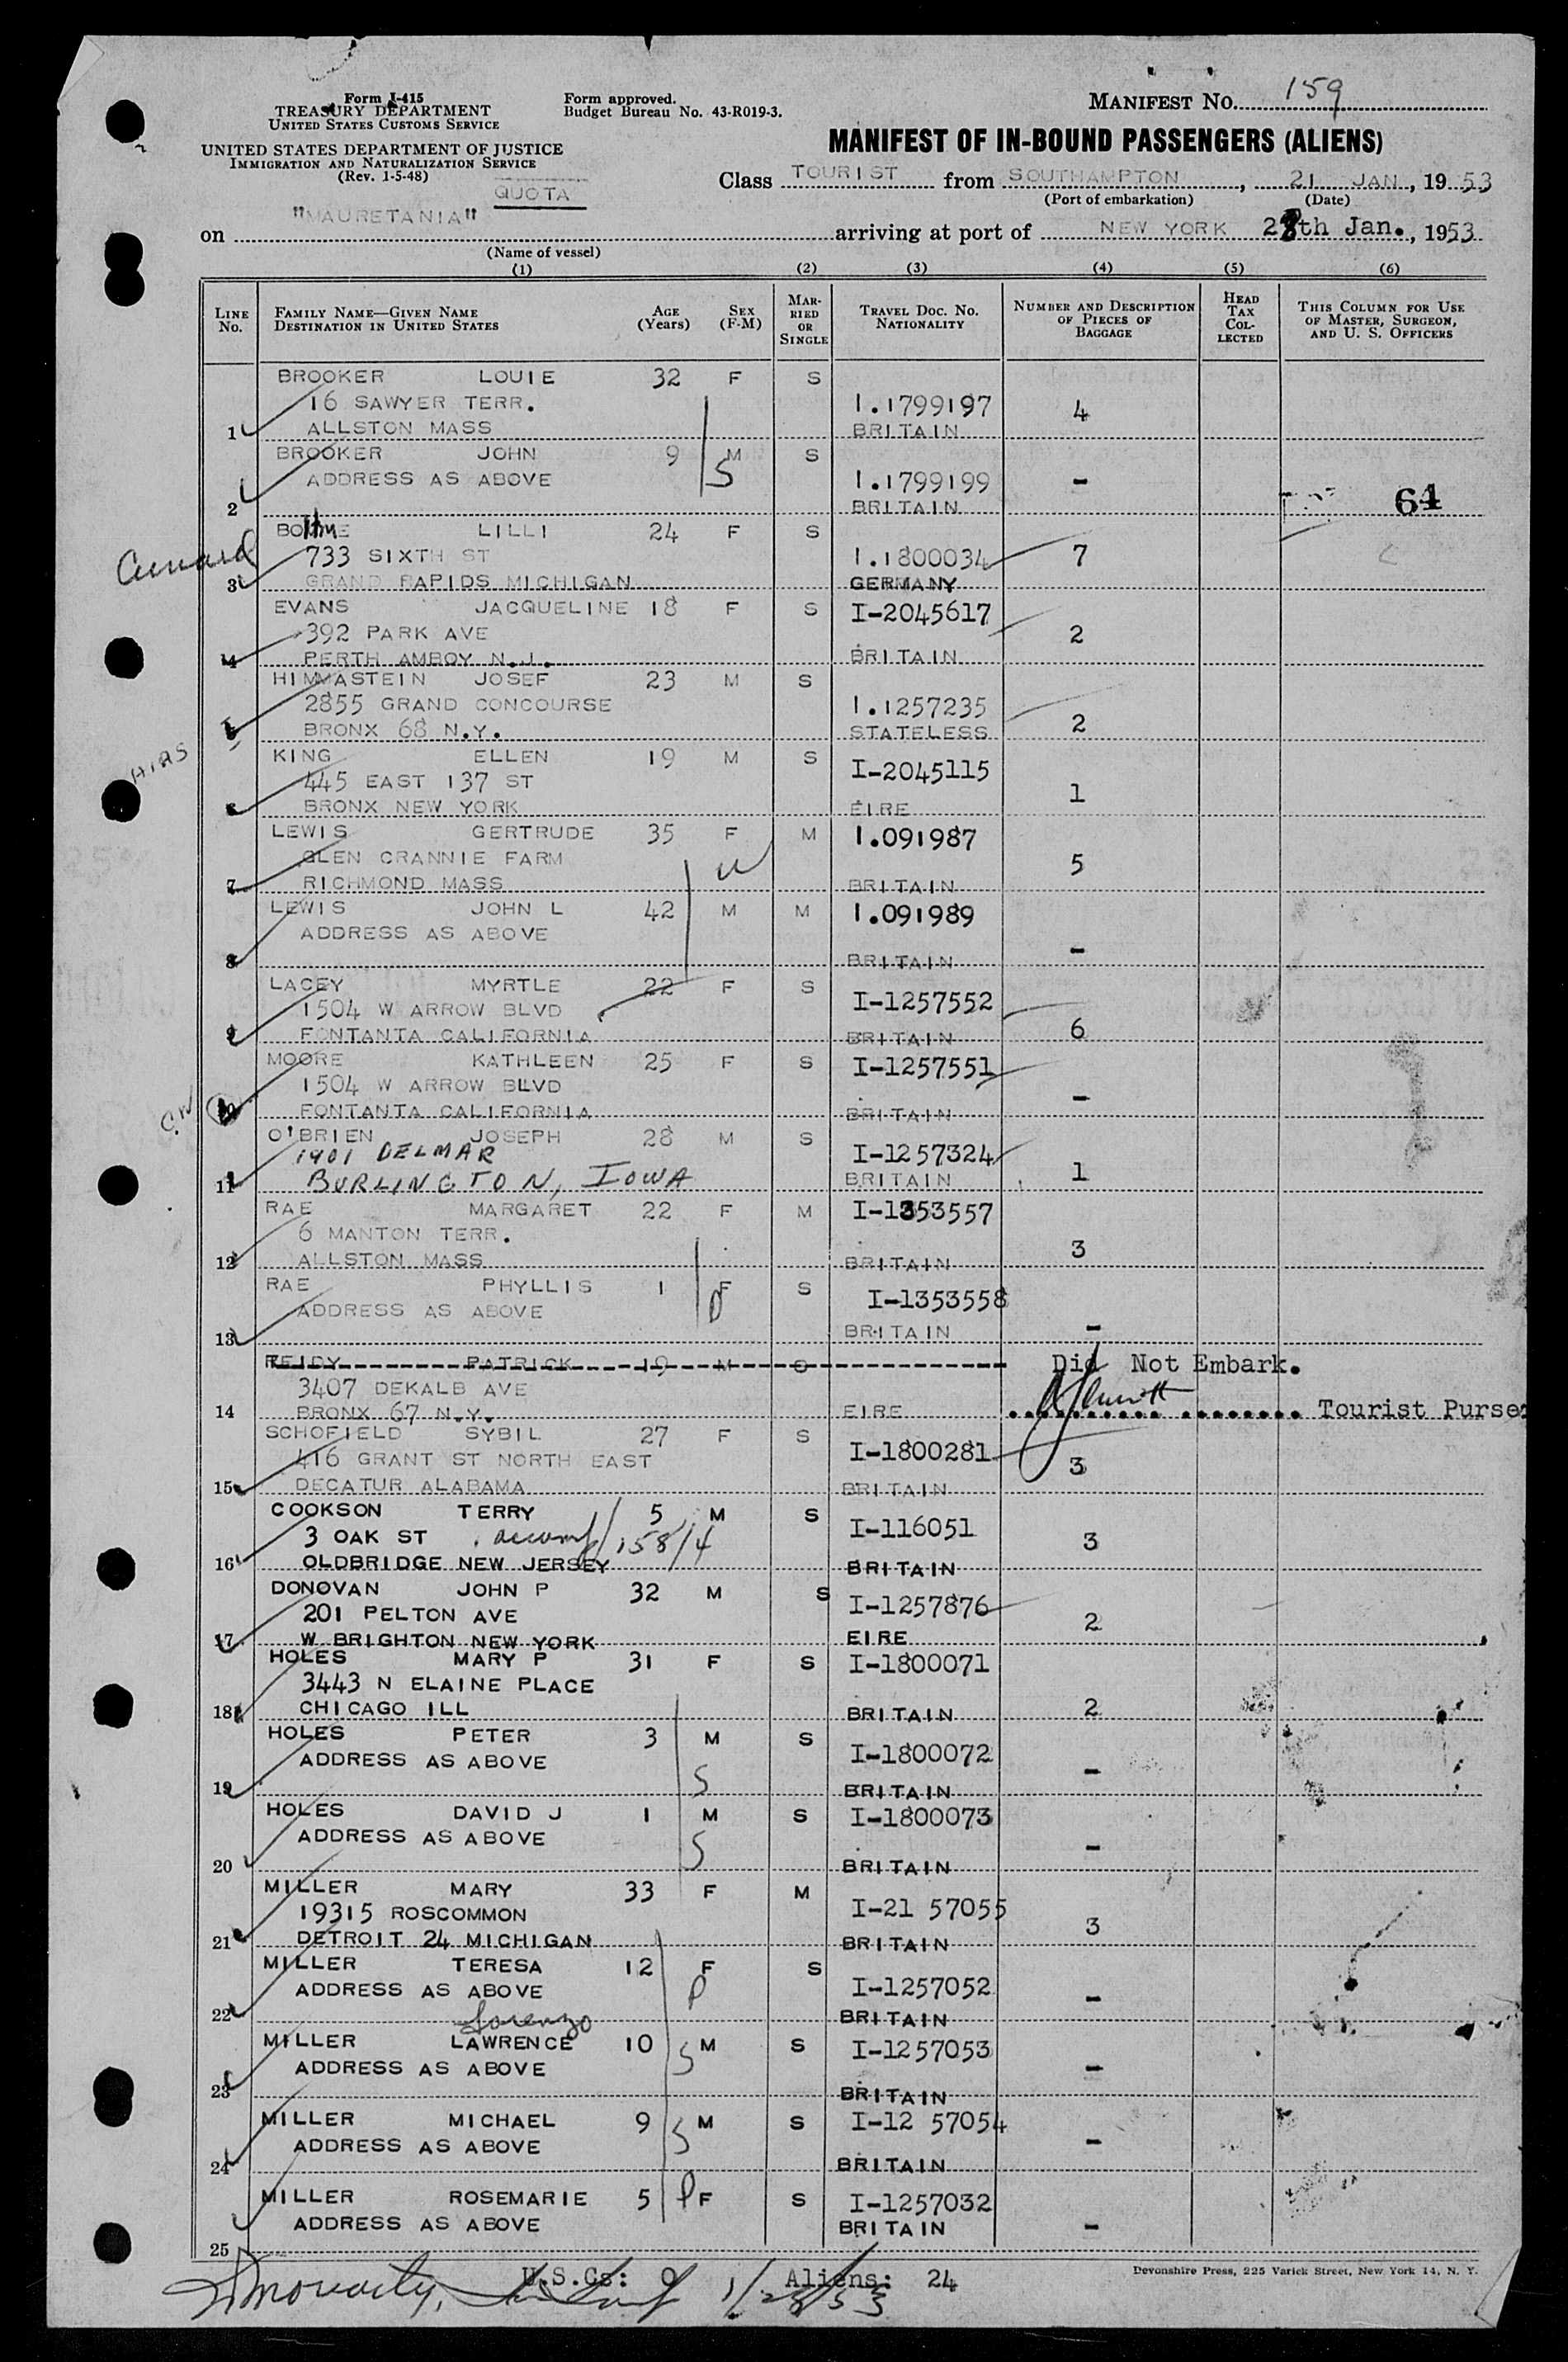 Form I-415
TREASURY DEPARTMENT
UNITED STATES CUSTOMS SERVICE
UNITED STATES DEPARTMENT OF JUSTICE
IMMIGRATION AND NATURALIZATION SERVICE
(Rev. 1-5-48)
Form approved.
Budget Bureau No. 43-R019-3.
MANIFEST NO. 159
MANIFEST OF IN-BOUND PASSENGERS (ALIENS)
QUOTA
Class TOURIST from SOUTHAMPTON, 21 JAN, 1953
(Port of embarkation) (Date)
on "MAURETANIA" arriving at port of NEW YORK 28th Jan., 1953
(Name of vessel)
(1) (2) (3) (4) (5) (6)
LINE No. FAMILY NAME—GIVEN NAME DESTINATION IN UNITED STATES AGE (Years) SEX (F-M) MARRIED OR SINGLE TRAVEL DOC. NO. NATIONALITY NUMBER AND DESCRIPTION OF PIECES OF BAGGAGE HEAD TAX COLLECTED THIS COLUMN FOR USE OF MASTER, SURGEON, AND U. S. OFFICERS
BROOKER LOUIE 32 F S
16 SAWYER TERR. I.1799197 4
1 ALLSTON MASS BRITAIN
BROOKER JOHN 9 M S
ADDRESS AS ABOVE S I.1799199 -
2 BRITAIN 64
LILLI 24 F S
Cunard 733 SIXTH ST I.1800034 7
3 GRAND RAPIDS MICHIGAN GERMANY
EVANS JACQUELINE 18 F S I-2045617
392 PARK AVE 2
4 PERTH AMBOY N.J. BRITAIN
HIMMASTEIN JOSEF 23 M S
2855 GRAND CONCOURSE I.1257235
5 BRONX 68 N.Y. STATELESS 2
HIAS
KING ELLEN 19 M S I-2045115
445 EAST 137 ST 1
6 BRONX NEW YORK EIRE
LEWIS GERTRUDE 35 F M I.091987
GLEN CRANNIE FARM 5
7 RICHMOND MASS BRITAIN
LEWIS JOHN L 42 M M I.091989
ADDRESS AS ABOVE -
8 BRITAIN
LACEY MYRTLE 22 F S I-1257552
1504 W ARROW BLVD 6
9 FONTANTA CALIFORNIA BRITAIN
MOORE KATHLEEN 25 F S I-1257551
1504 W ARROW BLVD -
10 FONTANTA CALIFORNIA BRITAIN
O'BRIEN JOSEPH 28 M S
1401 DELMAR I-1257324 1
11 BURLINGTON, IOWA BRITAIN
RAE MARGARET 22 F M I-1353557
6 MANTON TERR. 3
12 ALLSTON MASS BRITAIN
RAE PHYLLIS 1 F S I-1353558
ADDRESS AS ABOVE
13 BRITAIN -
REIDY PATRICK 19 M S Did Not Embark.
3407 DEKALB AVE
14 BRONX 67 N.Y. EIRE Tourist Purser
SCHOFIELD SYBIL 27 F S
416 GRANT ST NORTH EAST I-1800281 3
15 DECATUR ALABAMA BRITAIN
COOKSON TERRY 5 M S I-116051
3 OAK ST 158/4 3
16 OLDBRIDGE NEW JERSEY BRITAIN
DONOVAN JOHN P 32 M S I-1257876
201 PELTON AVE 2
17 W BRIGHTON NEW YORK EIRE
HOLES MARY P 31 F S I-1800071
3443 N ELAINE PLACE
18 CHICAGO ILL BRITAIN 2
HOLES PETER 3 M S I-1800072
ADDRESS AS ABOVE S -
19 BRITAIN
HOLES DAVID J 1 M S I-1800073
ADDRESS AS ABOVE S -
20 BRITAIN
MILLER MARY 33 F M
19315 ROSCOMMON I-21 57055 3
21 DETROIT 24 MICHIGAN BRITAIN
MILLER TERESA 12 F S
ADDRESS AS ABOVE I-1257052 -
22 BRITAIN
Lorenzo
MILLER LAWRENCE 10 M S I-1257053
ADDRESS AS ABOVE S -
23 BRITAIN
MILLER MICHAEL 9 M S I-12 57054
ADDRESS AS ABOVE S -
24 BRITAIN
MILLER ROSEMARIE 5 F S I-1257032
ADDRESS AS ABOVE BRITAIN -
25
U.S.Cs: 0 Aliens: 24
Devonshire Press, 225 Varick Street, New York 14, N. Y.
1/28/53